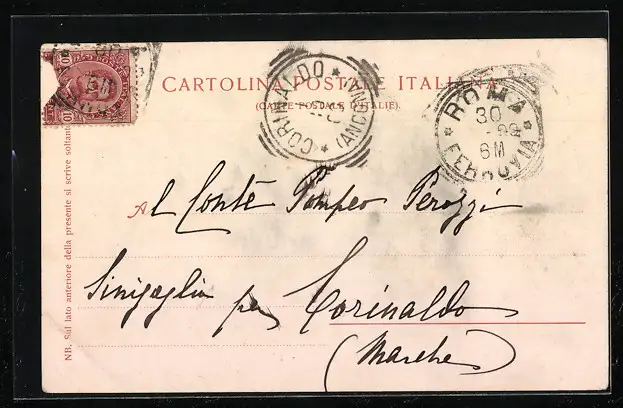 CARTOLINA POSTALE ITALIANA
(CARTE POSTALE D'ITALIE).
CORINALDO
(ANCONA)
ROMA
30
99
6M
FERROVIA
Al Conte Pompeo Perozzi
Sinigaglia per Corinaldo
(Marche)
NB. Sul lato anteriore della presente si scrive soltanto